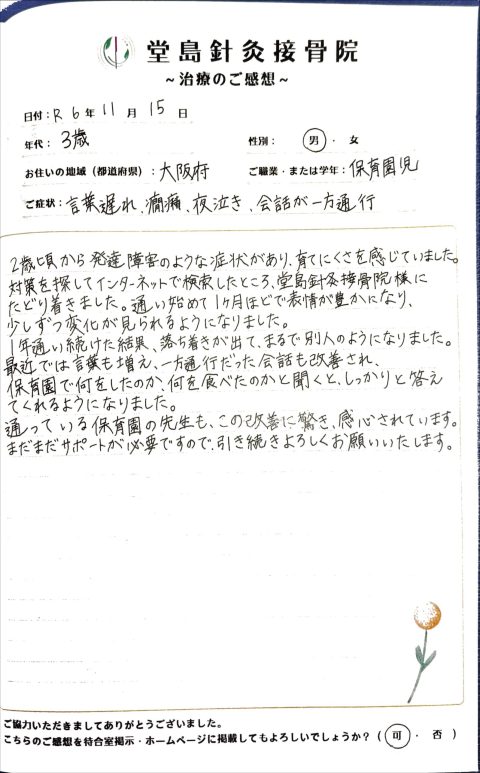 堂島針灸接骨院
~治療のご感想~
日付: R 6 年 11 月 15 日
年代: 3歳 性別: 男 ・ 女
お住いの地域(都道府県): 大阪府 ご職業・または学年: 保育園児
ご症状: 言葉遅れ、癇癪、夜泣き、会話が一方通行
2歳頃から発達障害のような症状があり、育てにくさを感じていました。
対策を探してインターネットで検索したところ、堂島針灸接骨院様に
たどり着きました。通い始めて1ヶ月ほどで表情が豊かになり、
少しずつ変化が見られるようになりました。
1年通い続けた結果、落ち着きが出て、まるで別人のようになりました。
最近では言葉も増え、一方通行だった会話も改善され、
保育園で何をしたのか、何を食べたのかと聞くと、しっかりと答え
てくれるようになりました。
通っている保育園の先生も、この改善に驚き、感心されています。
まだまだサポートが必要ですので、引き続きよろしくお願いいたします。
ご協力いただきましてありがとうございました。
こちらのご感想を待合室掲示・ホームページに掲載してもよろしいでしょうか?( 可 ・ 否 )